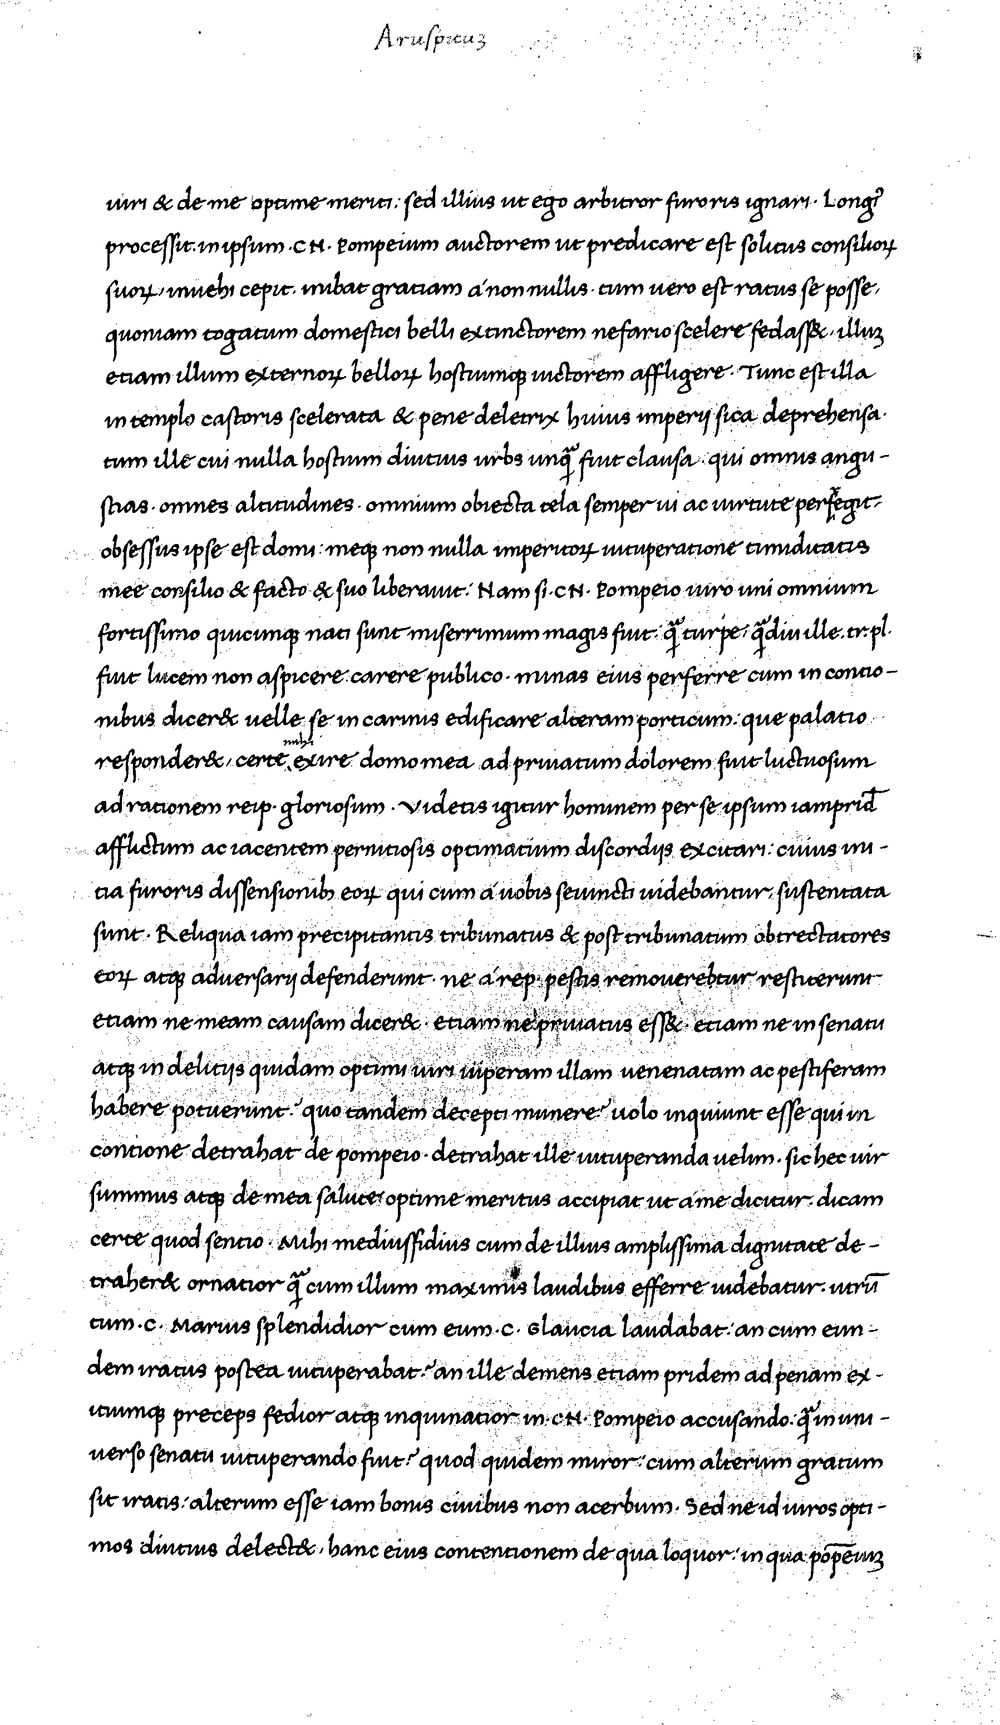 Aruspicuꝫ
uiri & de me optime meriti: sed illius ut ego arbitror furoris ignari. Longiꝰ
processit. in ipsum .CN. Pompeium auctorem ut predicare est solitus consilioꝝ
suoꝝ, inuehi cepit. inibat gratiam a nonnullis. tum uero est ratus se posse,
quoniam togatum domestici belli extinctorem nefario scelere fedass&, illuꝫ
etiam illum externoꝝ belloꝝ hostiumqꝫ uictorem affligere. Tunc est illa
in templo castoris scelerata & pene deletrix huius imperij sica deprehensa.
tum ille cui nulla hostium diutius urbs unqᷓ fuit clausa. qui omnis angu-
stias. omnes altitudines. omnium obiecta tela semper ui ac uirtute perfregit,
obsessus ipse est domi: meqꝫ non nulla imperitoꝝ uituperatione timiditatis
mee consilio & facto & suo liberauit. Nam si .CN. Pompeio uiro uni omnium
fortissimo quicumqꝫ nati sunt miserrimum magis fuit. qᷓ turpe, qᷓdiu ille .tr. pl.
fuit lucem non aspicere. carere publico. minas eius perferre cum in contio-
nibus dicer& uelle se in carinis edificare alteram porticum: que palatio
responder&, certe mihi exire domo mea ad priuatum dolorem fuit luctuosum
ad rationem reip. gloriosum. Videtis igitur hominem per se ipsum iamprid̄
afflictum ac iacentem pernitiosis optimatium discordijs excitari: cuius ini-
tia furoris dissensionibꝫ eoꝝ qui cum a uobis seiuncti uidebantur, sustentata
sunt. Reliqua iam precipitantis tribunatus & post tribunatum obtrectatores
eoꝝ atqꝫ adversarij defenderunt. ne a rep. pestis remoueretur restiterunt
etiam ne meam causam dicer&. etiam ne priuatus ess&. etiam ne in senatu
atqꝫ in delitijs quidam optimi uiri uiperam illam uenenatam ac pestiferam
habere potuerunt? quo tandem decepti munere? uolo inquiunt esse qui in
contione detrahat de pompeio. detrahat ille uituperanda uelim. sic hec uir
summus atqꝫ de mea salute optime meritus accipiat ut a me dicitur. dicam
certe quod sentio. Mihi mediusfidius cum de illius amplissima dignitate de-
traher& ornatior qᷓ cum illum maximis laudibus efferre uidebatur. utrū
tum .C. Marius splendidior cum eum .C. Glaucia laudabat. an cum eun-
dem iratus postea uituperabat? an ille demens etiam pridem ad penam ex-
itiumqꝫ preceps fedior atqꝫ inquinatior in .CN. Pompeio accusando. qᷓ in uni-
uerso senatu uituperando fuit? quod quidem miror. cum alterum gratum
sit iratis: alterum esse iam bonis ciuibus non acerbum. Sed ne id uiros opti-
mos diutius delect&, hanc eius contentionem de qua loquor. in qua pōpēiuꝫ